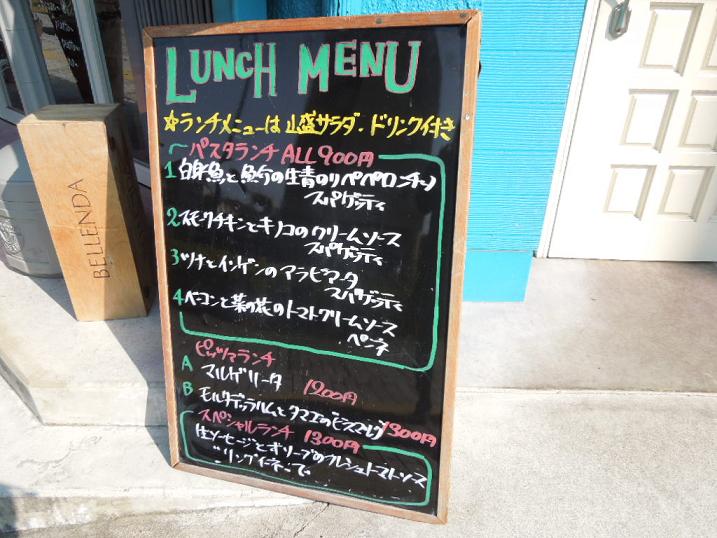 LUNCH MENU
☆ランチメニューは 山盛サラダ・ドリンク付き
パスタランチ ALL 900円
1 白身魚と の生青のりペペロンチーノ
スパゲッティ
2 スモークチキンとキノコのクリームソース
スパゲッティ
3 ツナとインゲンのアラビアータ
スパゲッティ
4 ベーコンと菜の花のトマトクリームソース
ペンネ
ピッツァランチ
A マルゲリータ 1200円
B モルタデッラハムとタマゴの"ビスマルク" 1300円
スペシャルランチ 1300円
生ソーセージとオリーブのフレッシュトマトソース
"リングイネ"で
BELLENDA